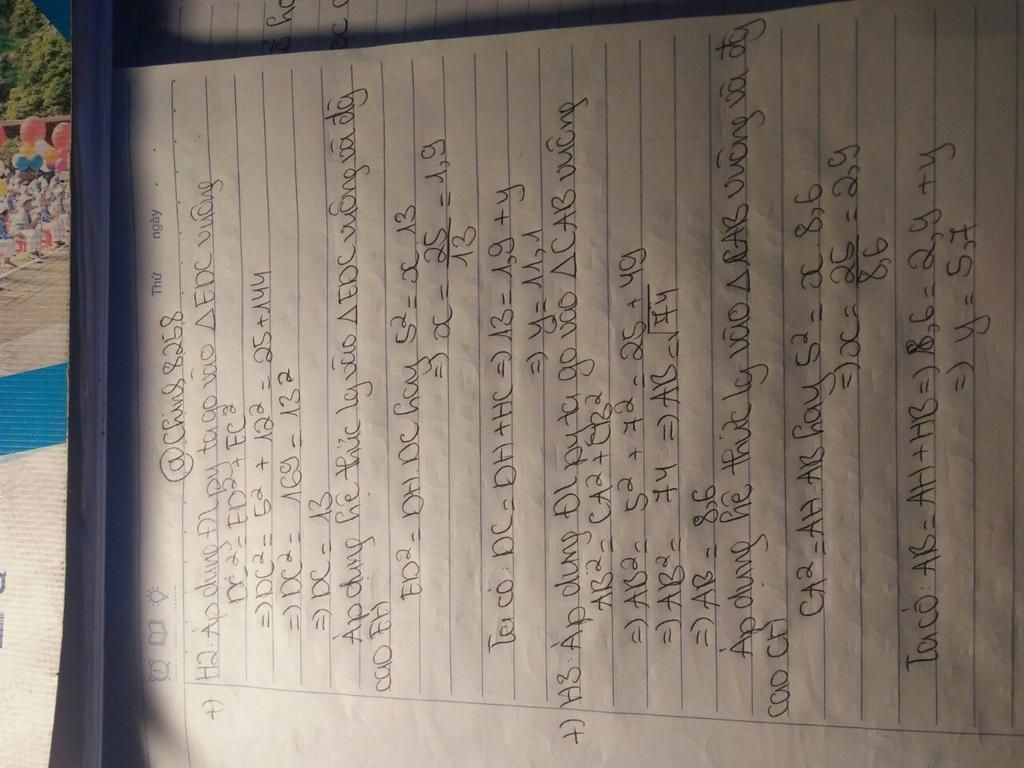 Thứ ngày
@Chin8.8268
+) H2: Áp dụng ĐL pytago vào ΔEDC vuông
DC² = ED² + EC²
=> DC² = 5² + 12² = 25 + 144
=> DC² = 169 = 13²
=> DC = 13
Áp dụng hệ thức lg vào ΔEDC vuông và đg
cao EH
ED² = DH.DC hay 5² = x.13
=> x = 25/13 = 1,9
Ta có: DC = DH + HC => 13 = 1,9 + y
=> y = 11,1
+) H3: Áp dụng ĐL pytago vào ΔCAB vuông
AB² = CA² + CB²
=> AB² = 5² + 7² = 25 + 49
=> AB² = 74 => AB = √74
=> AB = 8,6
Áp dụng hệ thức lg vào ΔAAB vuông và đg
cao CH
CA² = AH.AB hay 5² = x.8,6
=> x = 25/8,6 = 2,9
Ta có: AB = AH + HB => 8,6 = 2,9 + y
=> y = 5,7